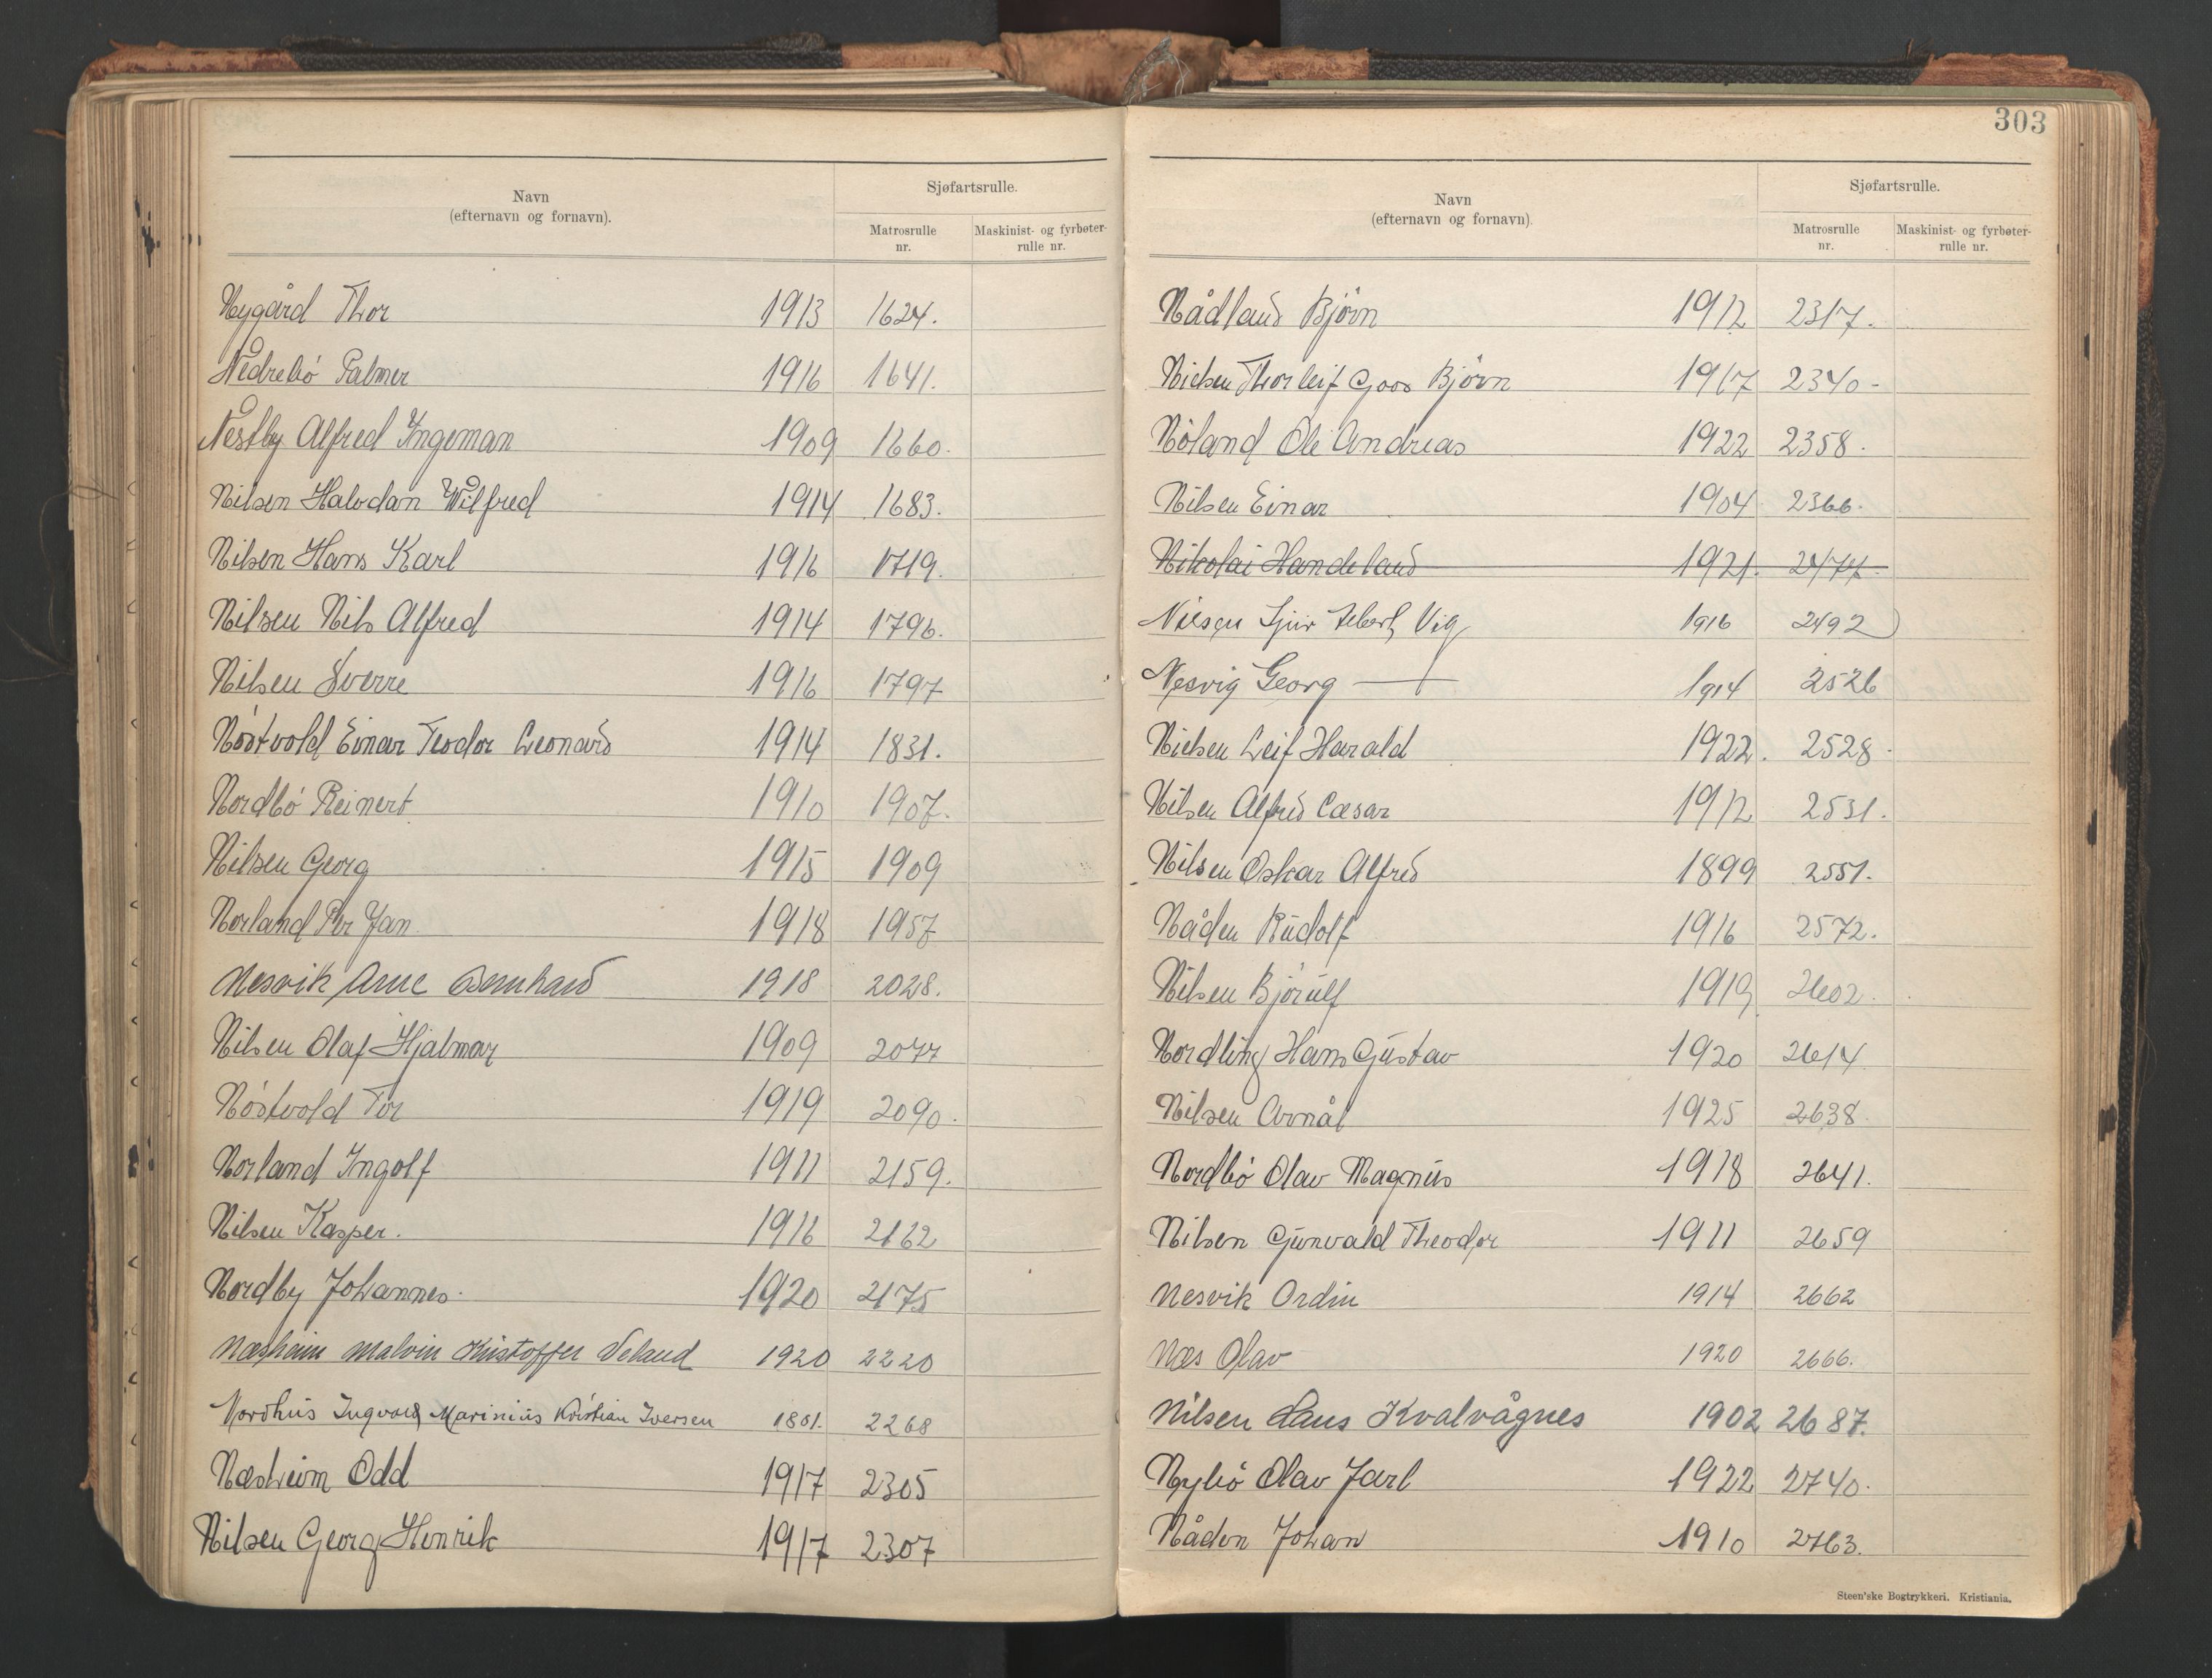 303
Navn
(efternavn og fornavn).
Sjøfartsrulle.
Matrosrulle
nr.
Maskinist- og fyrbøter-
rulle nr.
Nygård Thor 1913 1624.
Nedrebó Palmer 1916 1641.
Nestby Alfred Ingeman 1909 1660.
Nilsen Halvdan Wilfred 1914 1683.
Nilsen Hans Karl 1916 1719.
Nilsen Nils Alfred 1914 1796.
Nilsen Sverre 1916 1797
Nóstvold Einar Teodor Leonard 1914 1831.
Nordbó Reinert 1910 1907.
Nilsen Georg 1915 1909
Norland Per Jan 1918 1957
Nesvik Arne Bernhard 1918 2028.
Nilsen Olaf Hjalmar 1909 2077
Nóstvold Tor 1919 2090.
Norland Ingolf 1911 2159.
Nilsen Kasper. 1916 2162
Nordby Johannes. 1920 2175
Næsheim Malvin Kristoffer Veland 1920 2220
Nordhus Ingvald Marinius Kristian Iversen 1801. 2268
Næsheim Odd 1917 2305
Nilsen Georg Henrik 1917 2307
Navn
(efternavn og fornavn).
Sjøfartsrulle.
Matrosrulle
nr.
Maskinist- og fyrbøter-
rulle nr.
Nådland Bjørn 1912 2317.
Nielsen Thorleif Goos Bjørn 1917 2340-
Nóland Ole Andreas 1922 2358.
Nilsen Einar 1904 2366.
Nikolai Handeland 1921. 2477.
Nilsen Vig 1916 2492
Nesvig Georg 1914 2526
Nielsen Leif Harald 1922. 2528.
Nilsen Alfred Cæsar 1912 2531.
Nilsen Oskar Alfred 1899 2551.
Nåden Rudolf 1916 2572.
Nilsen Bjórulf 1919 2602.
Nordling Hans Gustav 1920 2614
Nilsen Arnål 1925 2638.
Nordbó Olav Magnus 1918 2641.
Nilsen Gunvald Theodor 1911 2659
Nesvik Ordin 1914 2662
Næs Olav 1920 2666.
Nilsen Laus Kvalvågnes 1902 2687.
Nybó Olav Jarl 1922 2740.
Nåden Johan 1910 2763.
Steen'ske Bogtrykkeri. Kristiania.